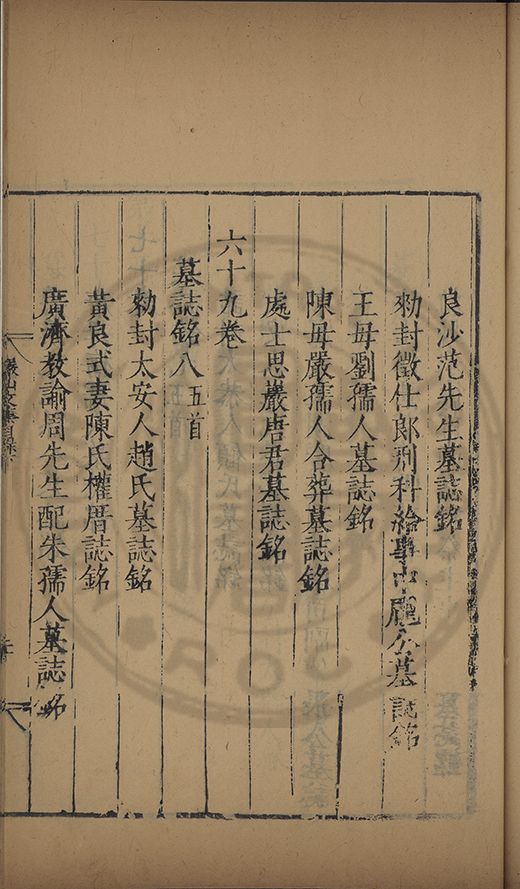 良沙范先生墓誌銘
勑封徵仕郎刑科給事中龐公墓誌銘
王母劉孺人墓誌銘
陳母嚴孺人合葬墓誌銘
處士思巖唐君墓誌銘
六十九卷
墓誌銘八五首
勑封太安人趙氏墓誌銘
黃良式妻陳氏權厝誌銘
廣濟教諭周先生配朱孺人墓誌銘